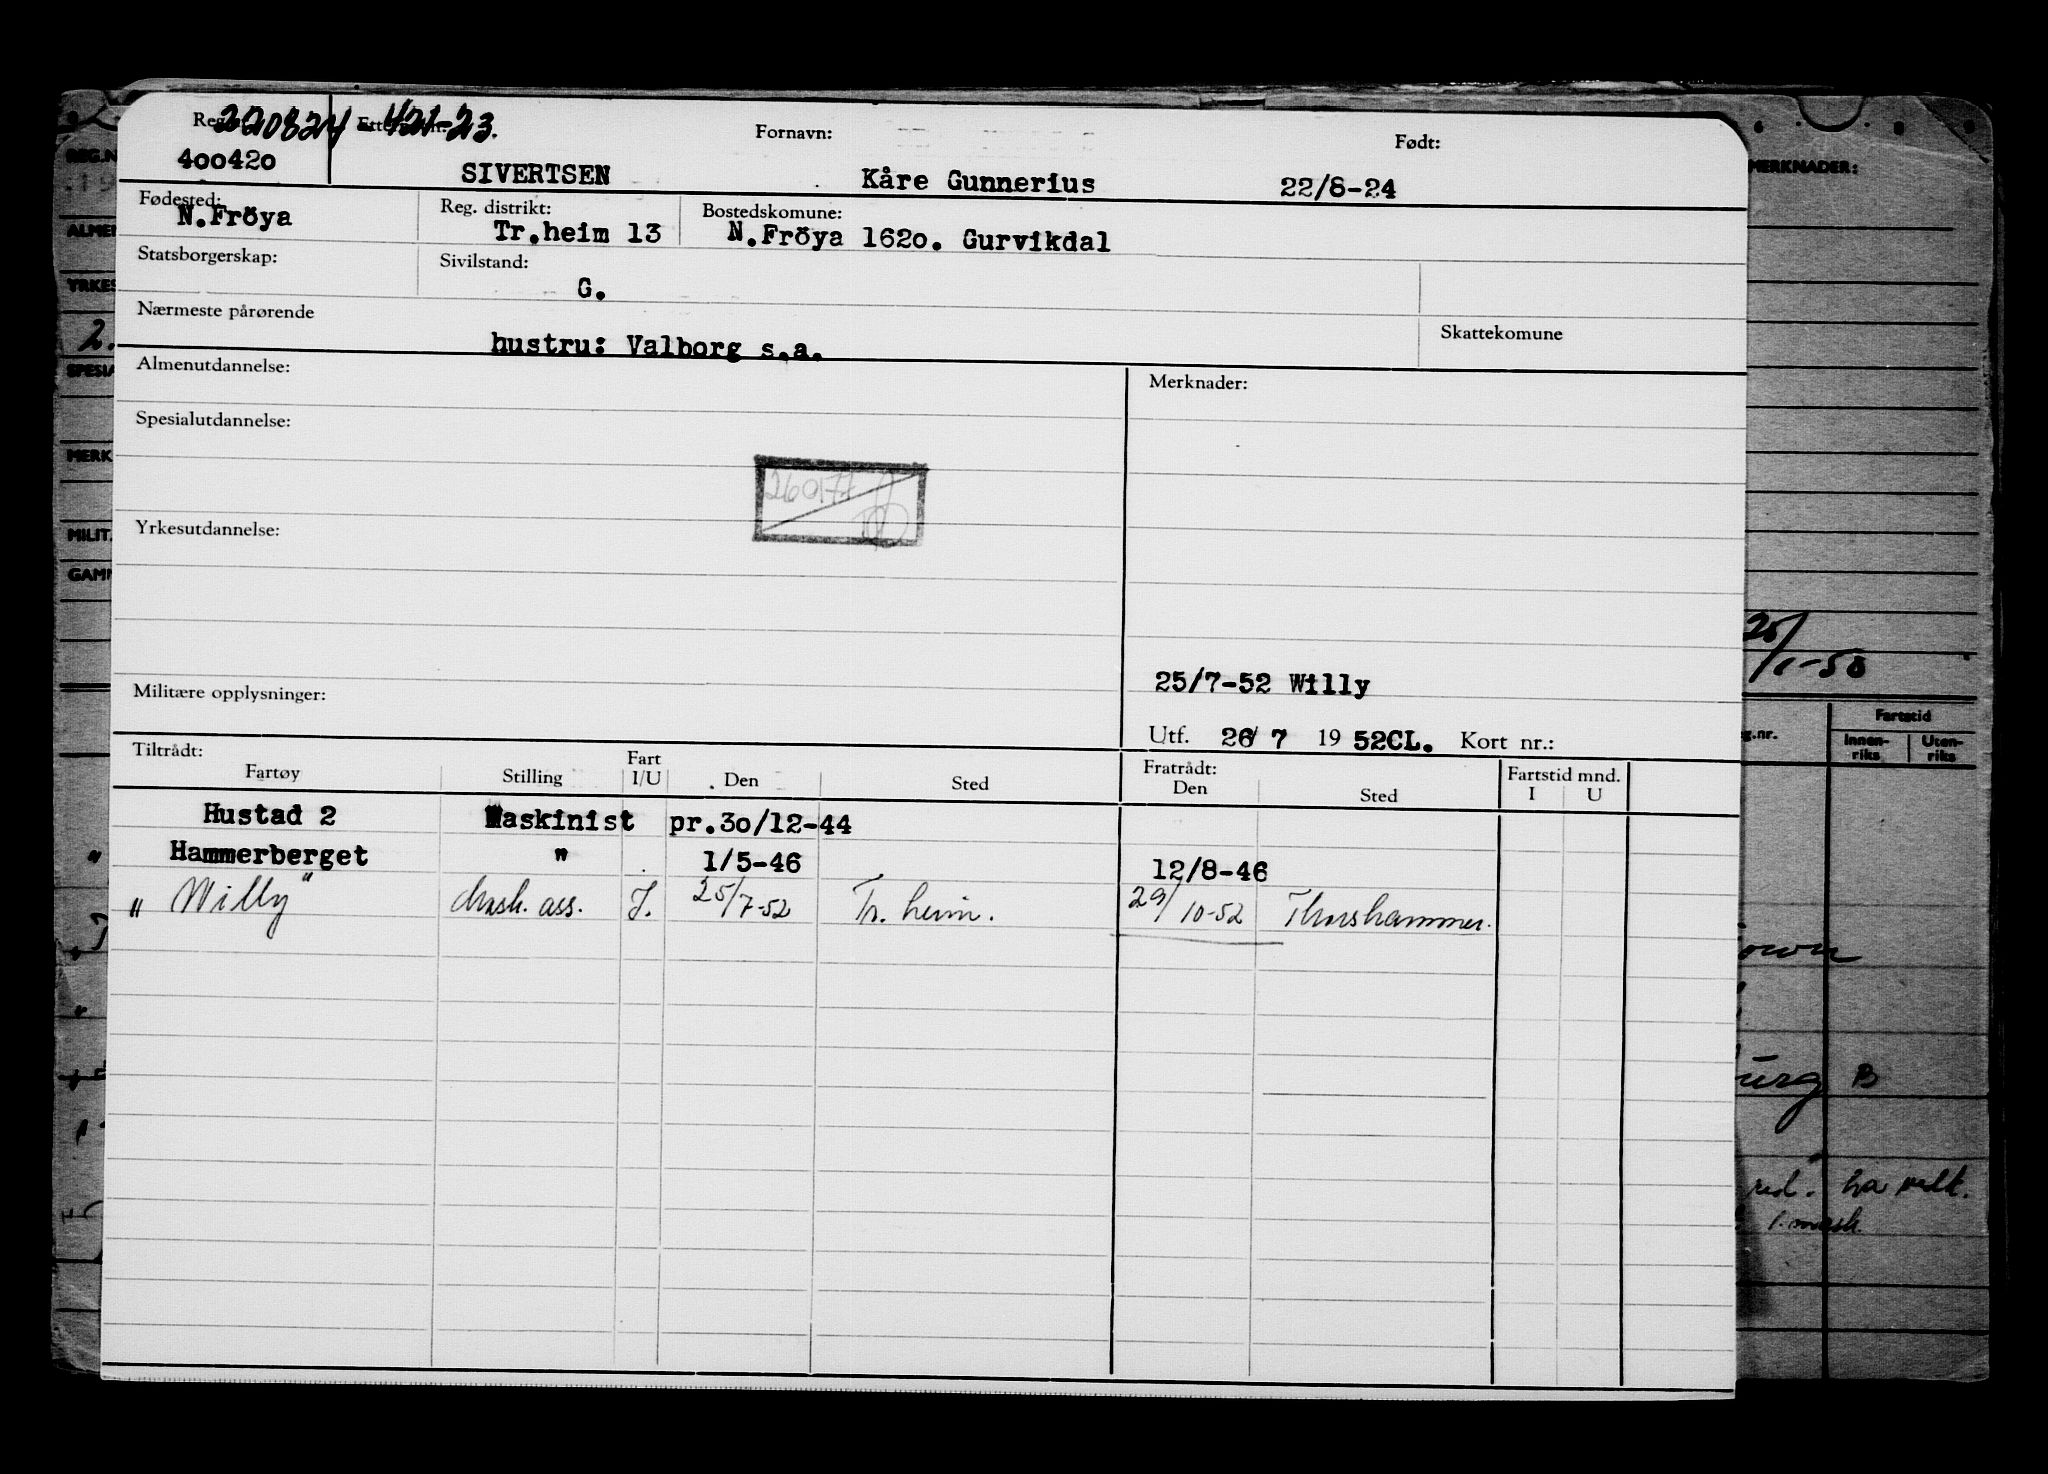 220824 - 421-23.
Fornavn: Født:
400420 SIVERTSEN Kåre Gunnerius 22/8-24
Fødested: Reg. distrikt: Bostedskomune:
N.Fröya Tr.heim 13 N.Fröya 1620. Gurvikdal
Statsborgerskap: Sivilstand:
G.
Nærmeste pårørende Skattekomune
hustru: Valborg s.a.
Almenutdannelse: Merknader:
Spesialutdannelse:
260177
Yrkesutdannelse:
25/7-52 Willy
Militære opplysninger:
Utf. 26/ 7 19 52CL. Kort nr.:
Tiltrådt: Fart Fratrådt: Fartstid mnd.
Fartøy Stilling I/U Den Sted Den Sted I U
Hustad 2 Maskinist pr.30/12-44
Hammerberget " 1/5-46 12/8-46
" Willy" Mask. ass. I. 25/7-52 Tr. heim. 29/10-52 Thorshammer.
MERKNADER:
25/1-50
Fartstid
Innen-riks Uten-riks
B
ha
1. mask.